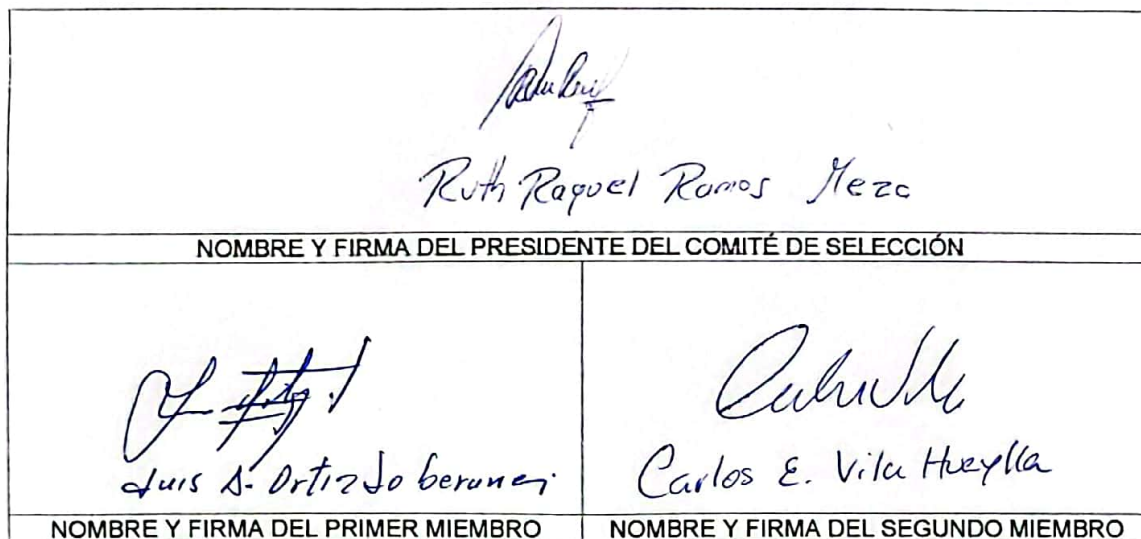 Ruth Raquel Ramos Meza
NOMBRE Y FIRMA DEL PRESIDENTE DEL COMITÉ DE SELECCIÓN
Luis A. Ortiz
Carlos E. Vila
NOMBRE Y FIRMA DEL PRIMER MIEMBRO
NOMBRE Y FIRMA DEL SEGUNDO MIEMBRO